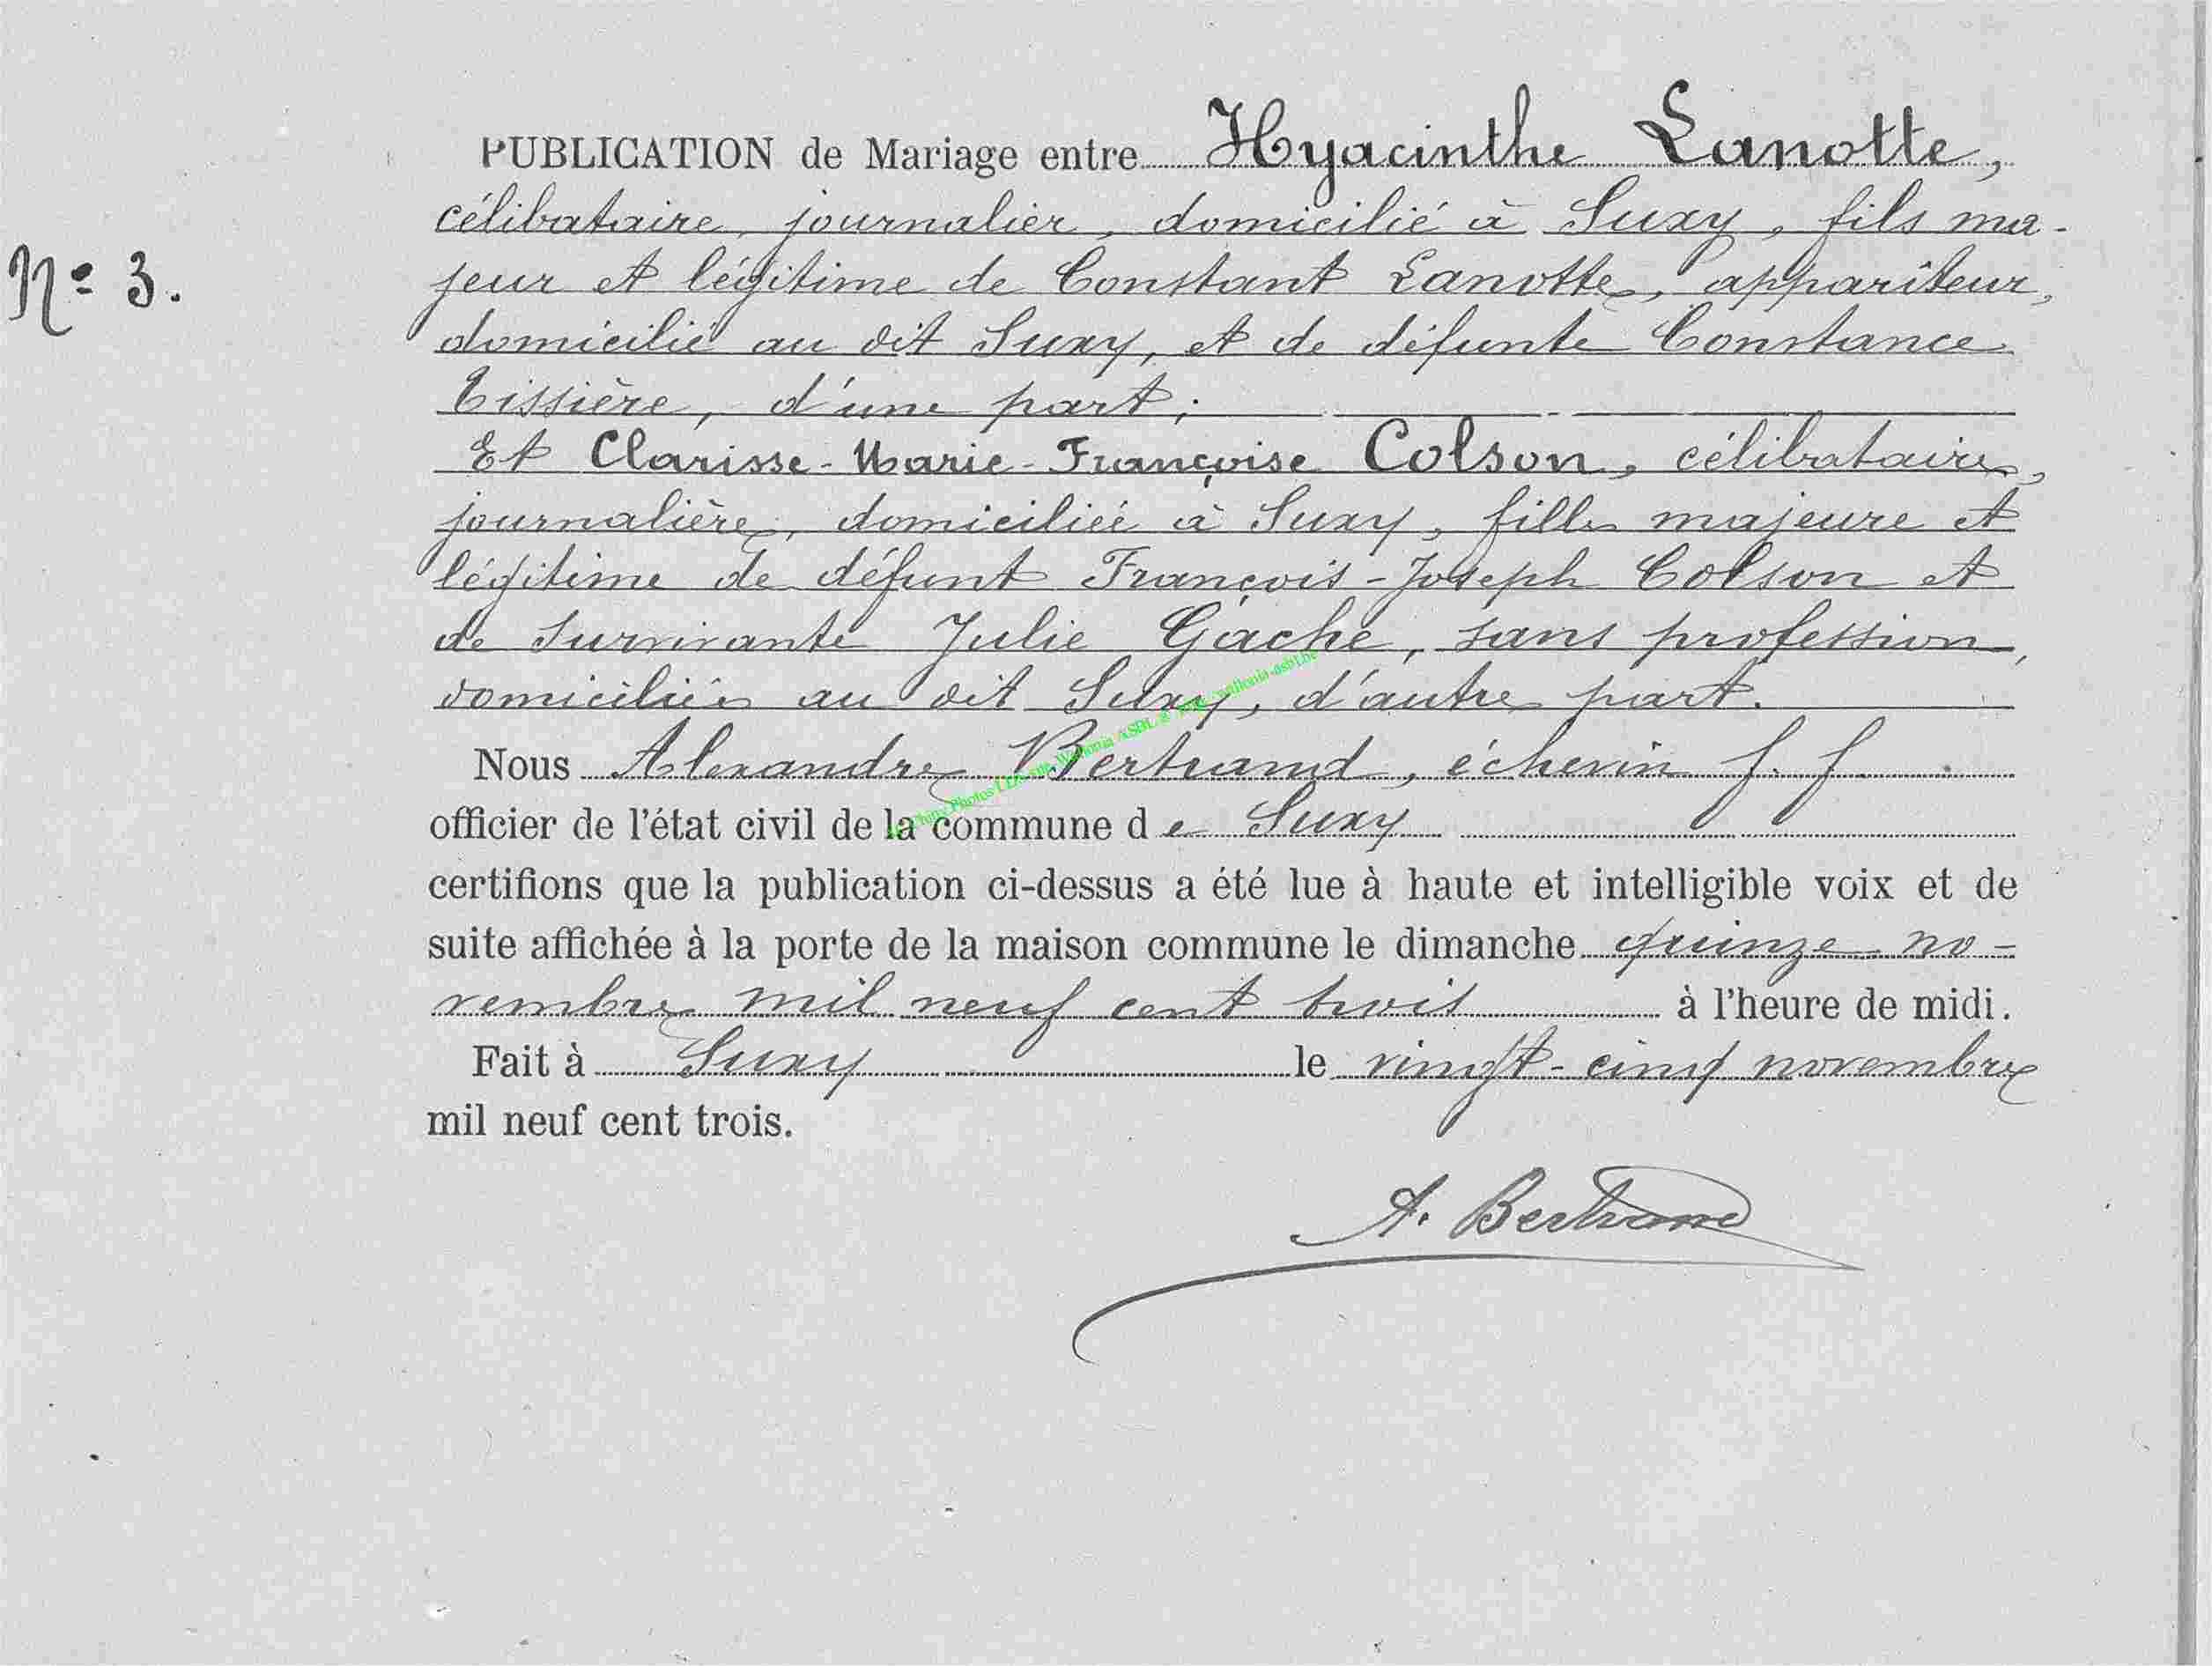 N° 3.
PUBLICATION de Mariage entre Hyacinthe Lanotte,
célibataire, journalier, domicilié à Suxy, fils ma-
jeur et légitime de Constant Lanotte, appariteur,
domicilié au dit Suxy, et de défunte Constance
Tissière, d'une part;
Et Clarisse-Marie-Françoise Colson, célibataire,
journalière, domiciliée à Suxy, fille majeure et
légitime de défunt François-Joseph Colson et
de survivante Julie Gache, sans profession,
domiciliée au dit Suxy, d'autre part.
Nous Alexandre Bertrand, échevin f. f.
officier de l'état civil de la commune de Suxy
certifions que la publication ci-dessus a été lue à haute et intelligible voix et de
suite affichée à la porte de la maison commune le dimanche quinze no-
vembre mil neuf cent trois à l'heure de midi.
Fait à Suxy le vingt-cinq novembre
mil neuf cent trois.
A. Bertrand